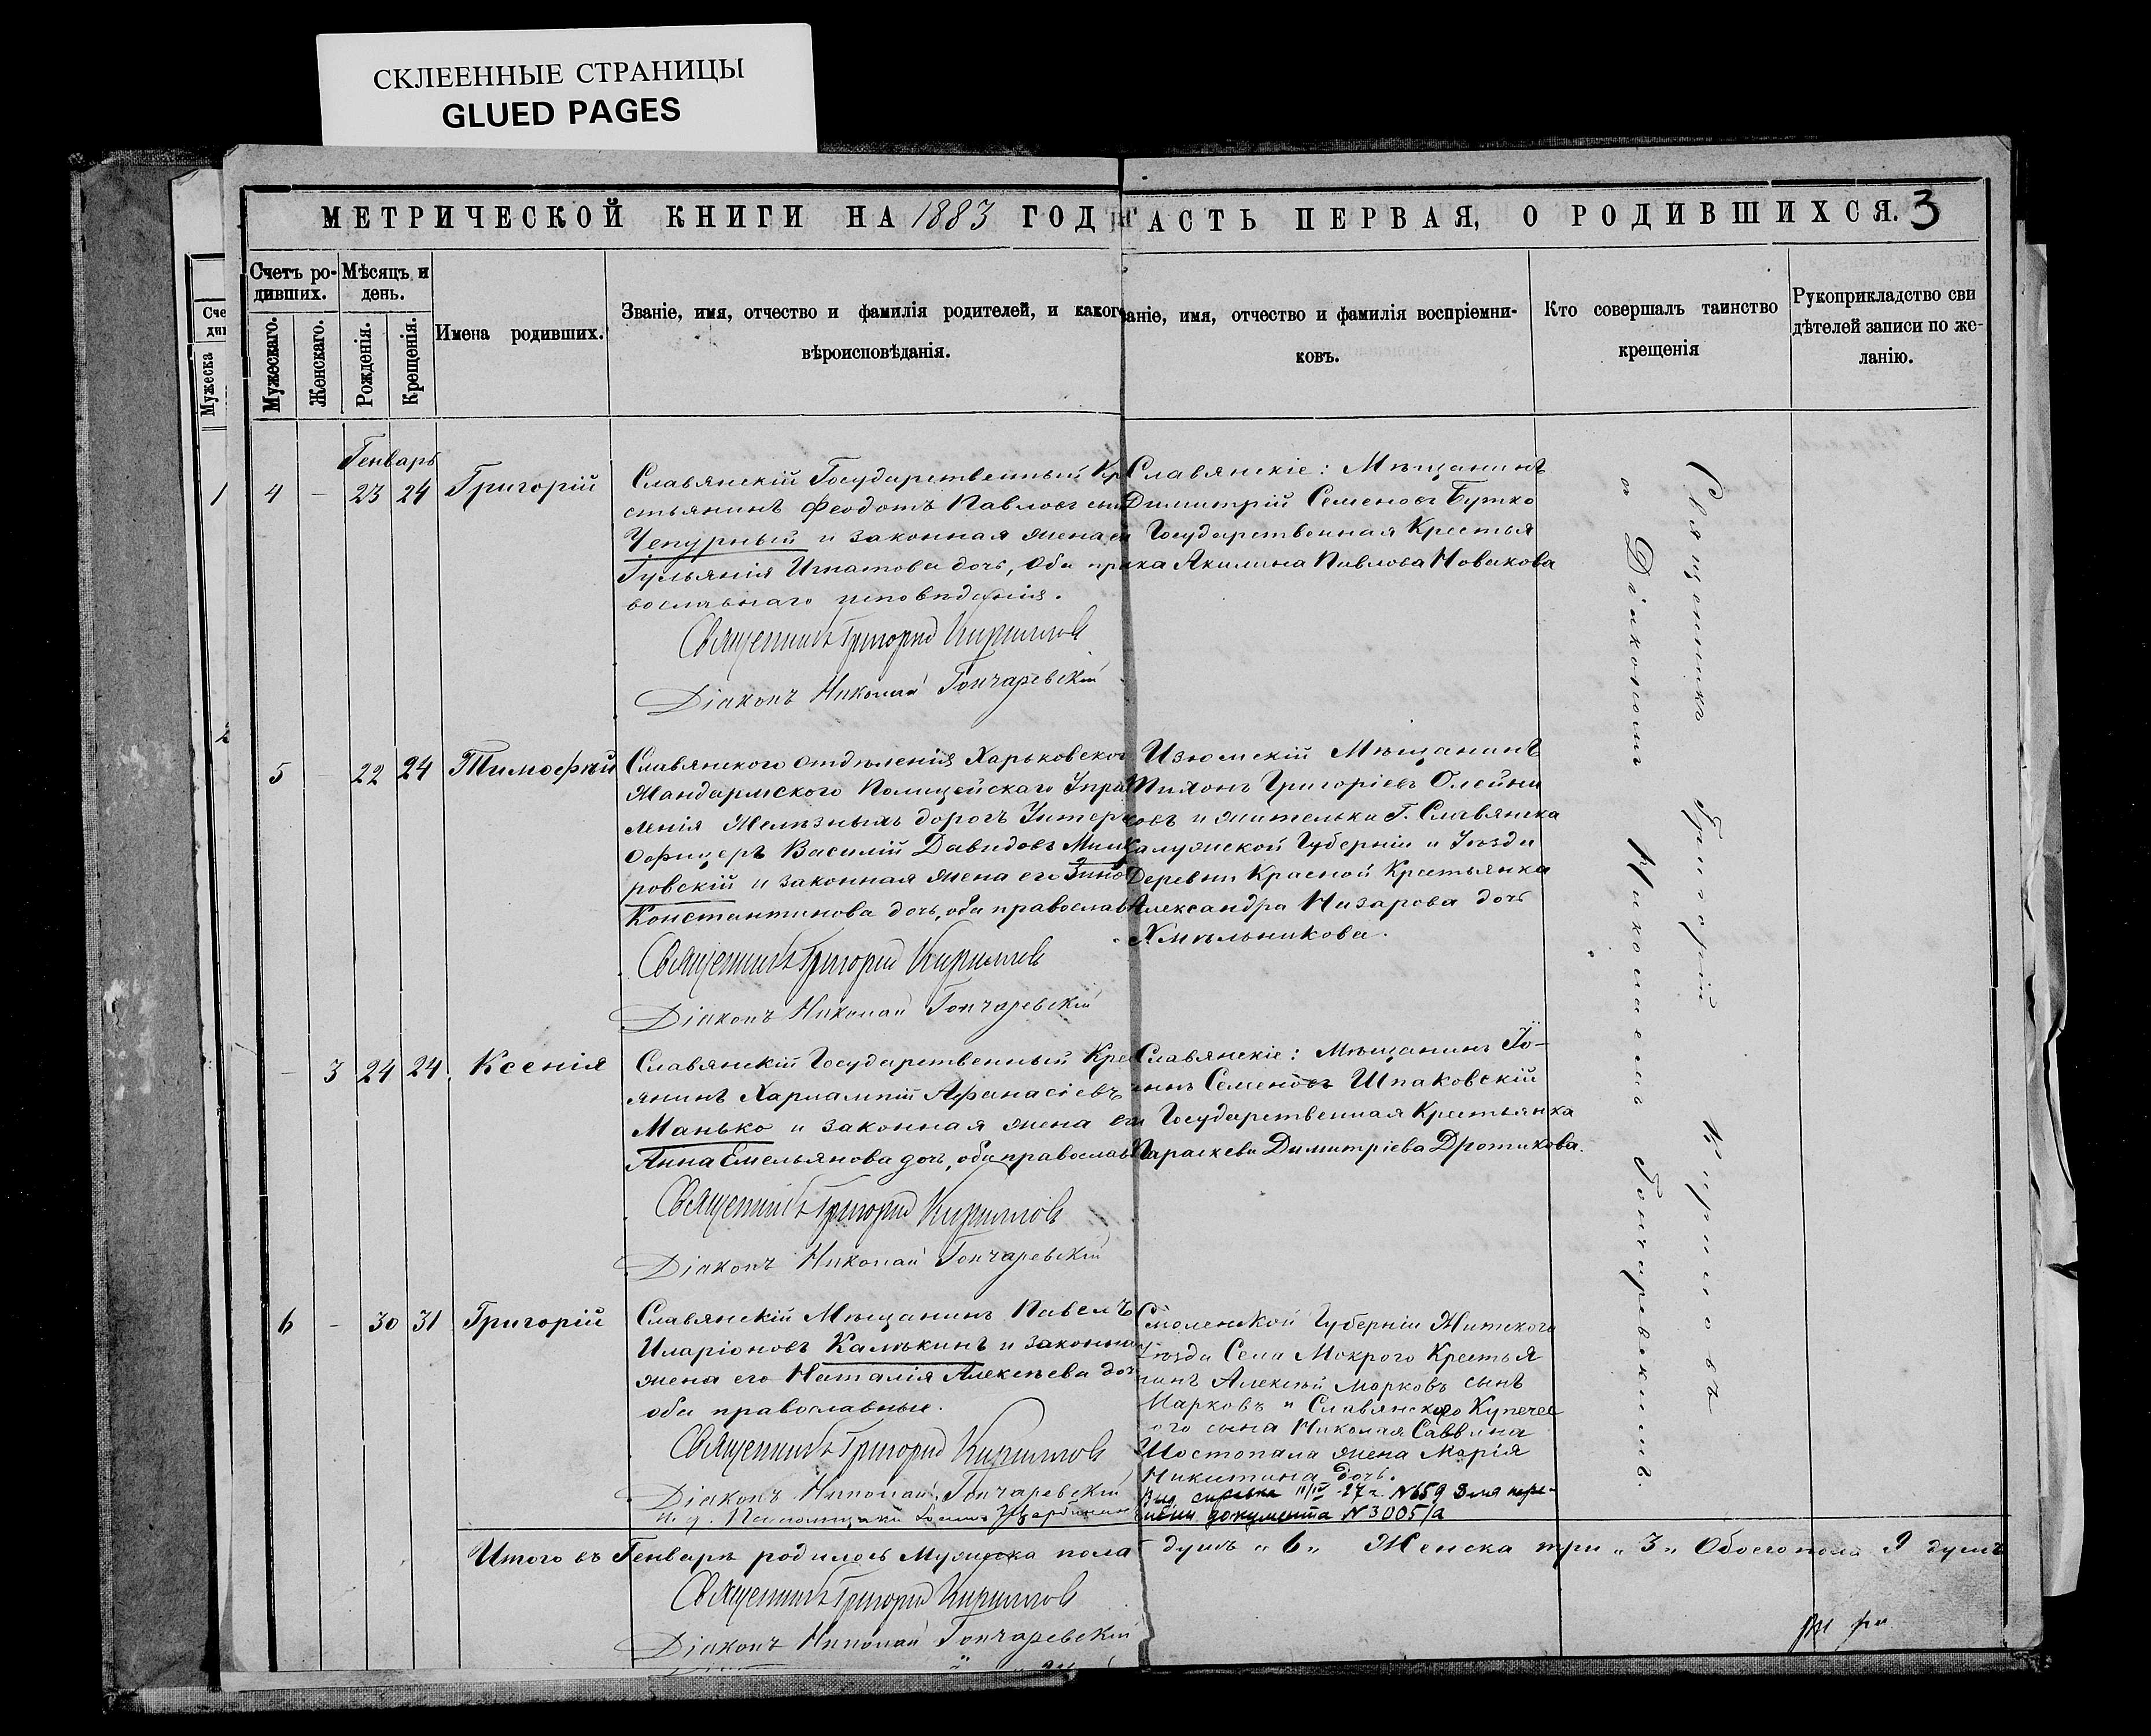 СКЛЕЕННЫЕ СТРАНИЦЫ
GLUED PAGES
МЕТРИЧЕСКОЙ КНИГИ НА 1883 ГОД
АСТЬ ПЕРВАЯ, О РОДИВШИХСЯ. 3
Счетъ ро-
дившихъ.
Мужескаго.
Женскаго.
Мѣсяцъ и
день.
Рожденія.
Крещенія.
Имена родившихъ.
Званіе, имя, отчество и фамилія родителей, и каког
вѣроисповѣданія.
аніе, имя, отчество и фамилія воспріемни-
ковъ.
Кто совершалъ таинство
крещенія
Рукоприкладство сви
дѣтелей записи по же-
ланію.
Генварь
4 – 23 24 Григорій
Славянскій Государственный Кр
стьянинъ Феодотъ Павловъ сын
Чепурный и законная жена ег
Гульянія Игнатова дочь, оба пра
вославнаго исповѣданія.
Священникъ Григорій Кириллов
Діаконъ Николай Гончаревскій
Славянскіе: Мѣщанинъ
Димитрій Семеновъ Бутко
и Государственная Крестья
ка Акилина Павлова Новакова
5 22 24 Тимофѣй
Славянского отдѣленія Харьковског
Жандармского Полицейскаго Упра
ленія Желѣзныхъ дорогъ Унтер
офицеръ Василій Давидовъ Мик
ровскій и законная жена его Зино
Константинова дочь, оба православ
Священникъ Григорій Кириллов
Діаконъ Николай Гончаревскій
Изюмскій Мѣщанинъ
Тихонъ Григоріевъ Олейни
ковъ и жителька Г. Славянска
Калужской Губерніи и Уѣзда
Деревни Красной Крестьянка
Александра Назарова дочь
Хмѣльникова.
– 3 24 24 Ксенія
Славянскій Государственный Кре
янинъ Харлампій Афанасіевъ
Манько и законная жена ег
Анна Емельянова дочь, оба православ
Священникъ Григорій Кириллов
Діаконъ Николай Гончаревскій
Славянскіе: Мѣщанинъ Іо-
аннъ Семеновъ Шпаковскій
и Государственная Крестьянка
Параскева Димитріева Дротикова.
6 – 30 31 Григорій
Славянскій Мѣщанинъ Павелъ
Иларіоновъ Калѣкинъ и законна
жена его Наталія Алексѣева доч
оба православные.
Священникъ Григорій Кириллов
Діаконъ Николай Гончаревскій
Смоленской Губерніи
Уѣзда Села Мокрого Крестья
нинъ Алексѣй Марковъ сынъ
Марковъ и Славянского Купечес
ого сына Николая Саввина
Шостопала жена Марія
Никитина дочь.
Выд справка 11/IV-27 г. №659
документа №3005/а
Священникъ Григорій Кирилловъ
съ Діакономъ Николаемъ Гончаревскимъ.
Итого въ Генварѣ родилось Мужеска пола душъ „6„ Женска три „3„ Обоего пола 9 душъ
Священникъ Григорій Кириллов
Діаконъ Николай Гончаревскій